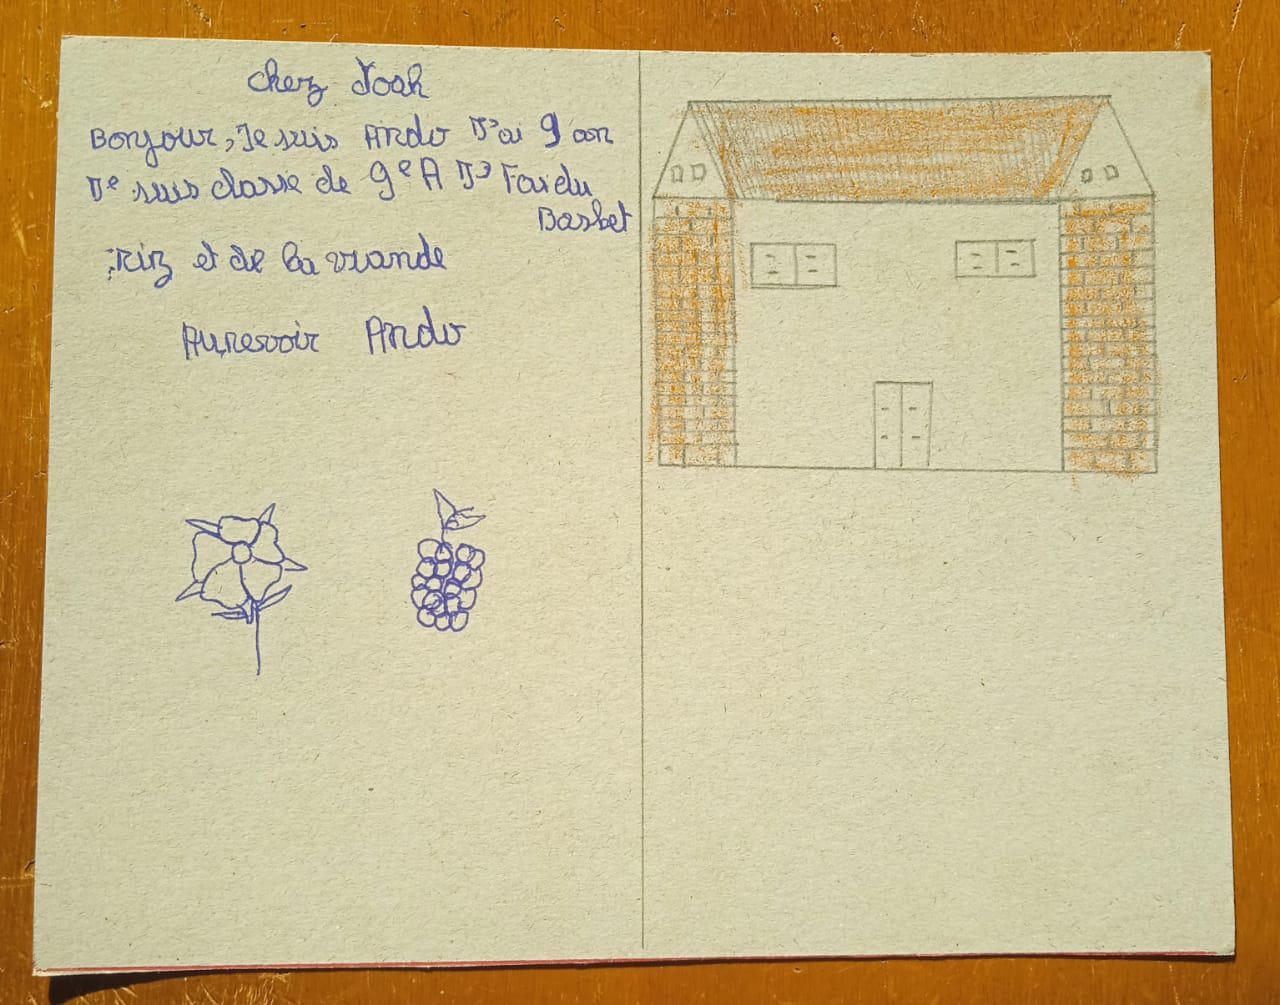 Chez Noah
Bonjour, Je suis Ando J'ai 9 an
Je suis classe de 9e A J' Fai du
Basbet
riz et de la viande
Aurevoir Ando